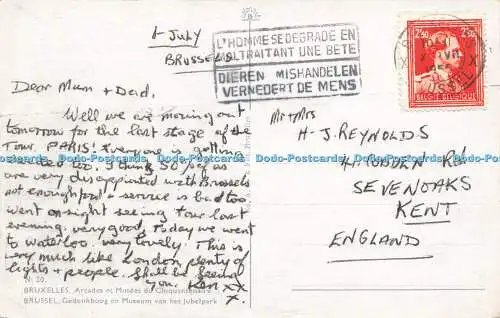 1 July
BRUSSELS
Dear Mum + Dad,
Well we are moving out
tomorrow for the last stage of the
Tour. PARIS! Everyone is getting
too. I think 50% of us
are very disappointed with Brussels
not enough + service is bad too.
Went on sight seeing tour last
evening. very good. Today we went
to Waterloo. very lovely. This is
very much like London plenty of
lights + people. Shall be seeing
you. Ken xx
x.
N° 20.
BRUXELLES, Arcades et Musées du Cinquantenaire
BRUSSEL, Gedenkboog en Museum van het Jubelpark
L'HOMME SE DEGRADE EN
MALTRAITANT UNE BETE
DIEREN MISHANDELEN
VERNEDERT DE MENS!
2,50 2,50
BELGIE BELGIQUE
Mr + Mrs
H-J. REYNOLDS
RD
SEVENOAKS
KENT
ENGLAND
Dodo-Postcards Dodo-Postcards Dodo-Postcards Dodo-Postcards Dodo-Postcards Dodo-Postcards